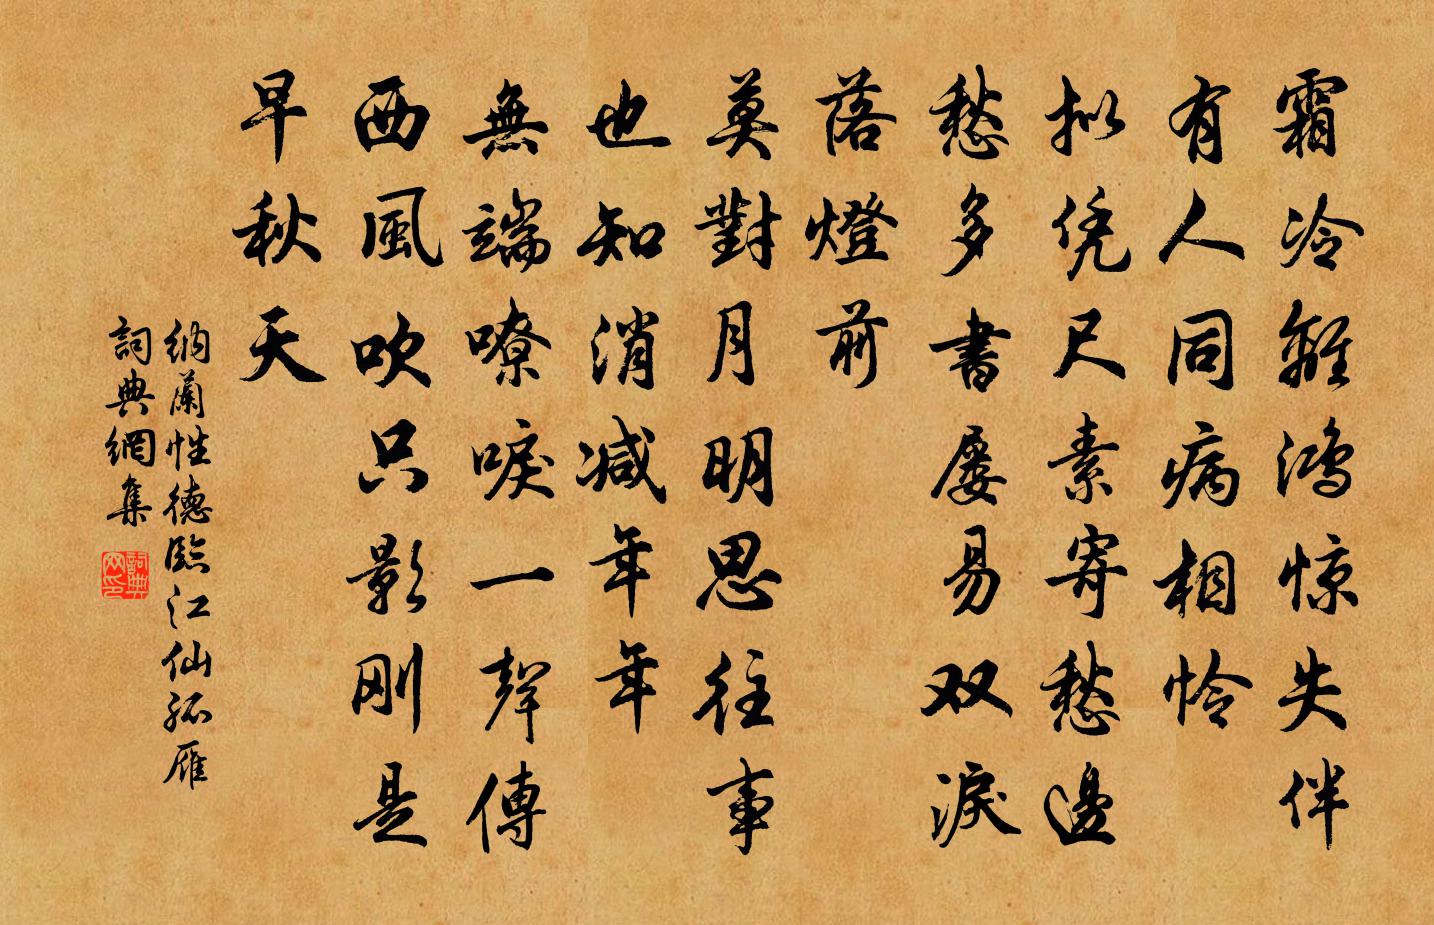 霜冷離鴻惊失伴
有人同病相怜
拟凭尺素寄愁邊
愁多書屡易双淚
落燈前
莫對月明思往事
也知消减年年
無端嘹唳一聲傳
西風吹只影刚是
早秋天
納蘭性德臨江仙孤雁
詞典網集
詞典网印